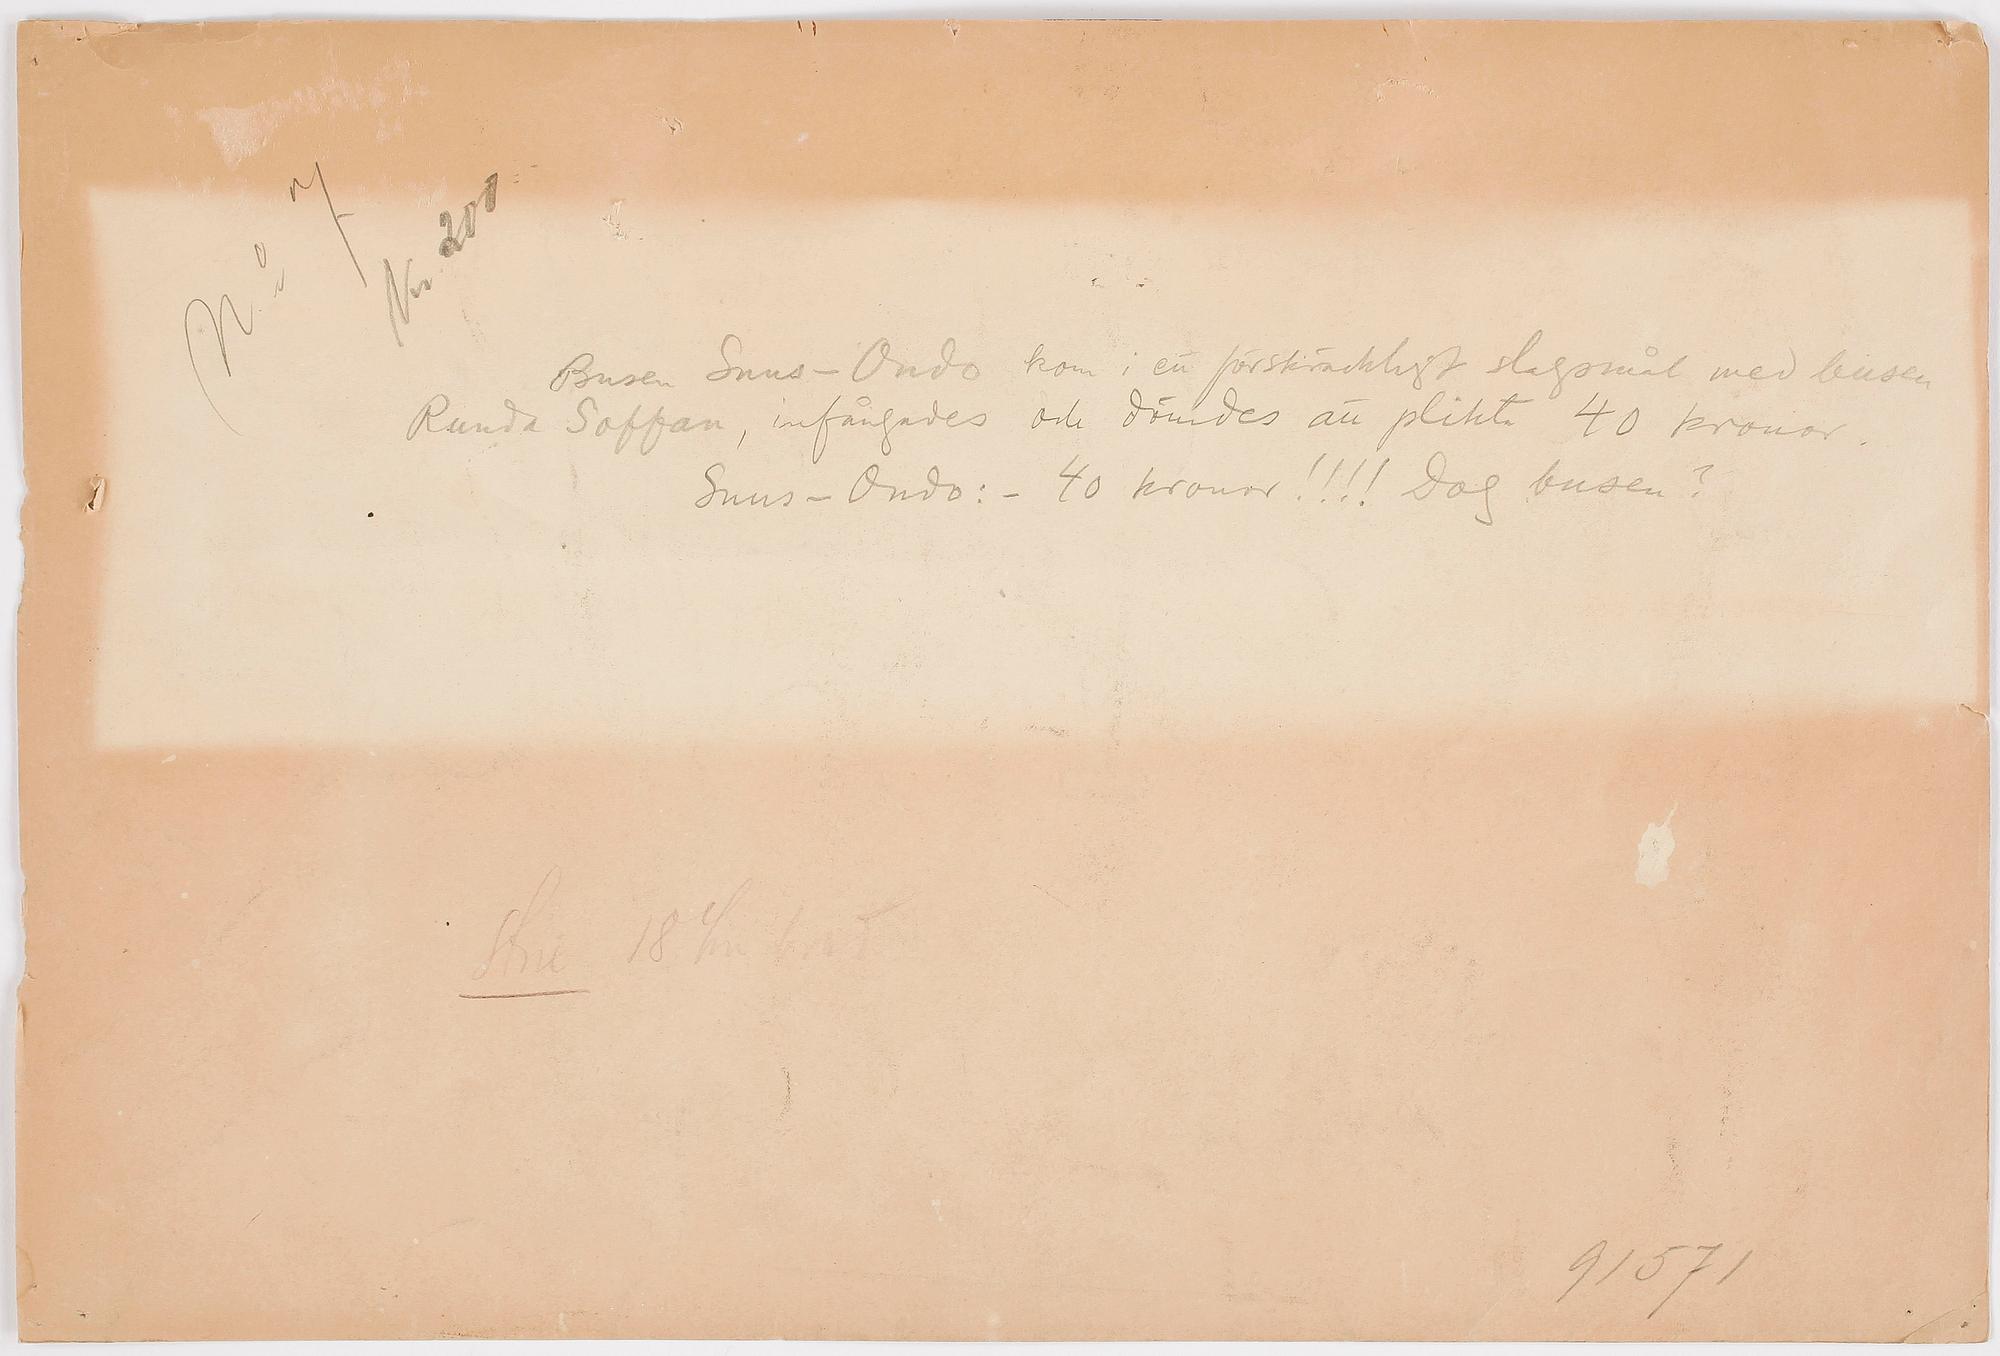 No 7
No 200
Busen Snus-Ondo kom i ett förskräckligt slagsmål med busen
Runda Soffan, infångades och dömdes att plikta 40 kronor.
Snus-Ondo:- 40 kronor!!!! Dog busen?
18 cm
91571